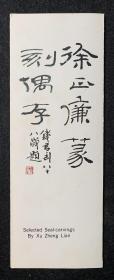 徐正廉篆
刻偶存
錢君匋八十
八歲題
Selected Seal-carvings
By Xu Zheng Lian